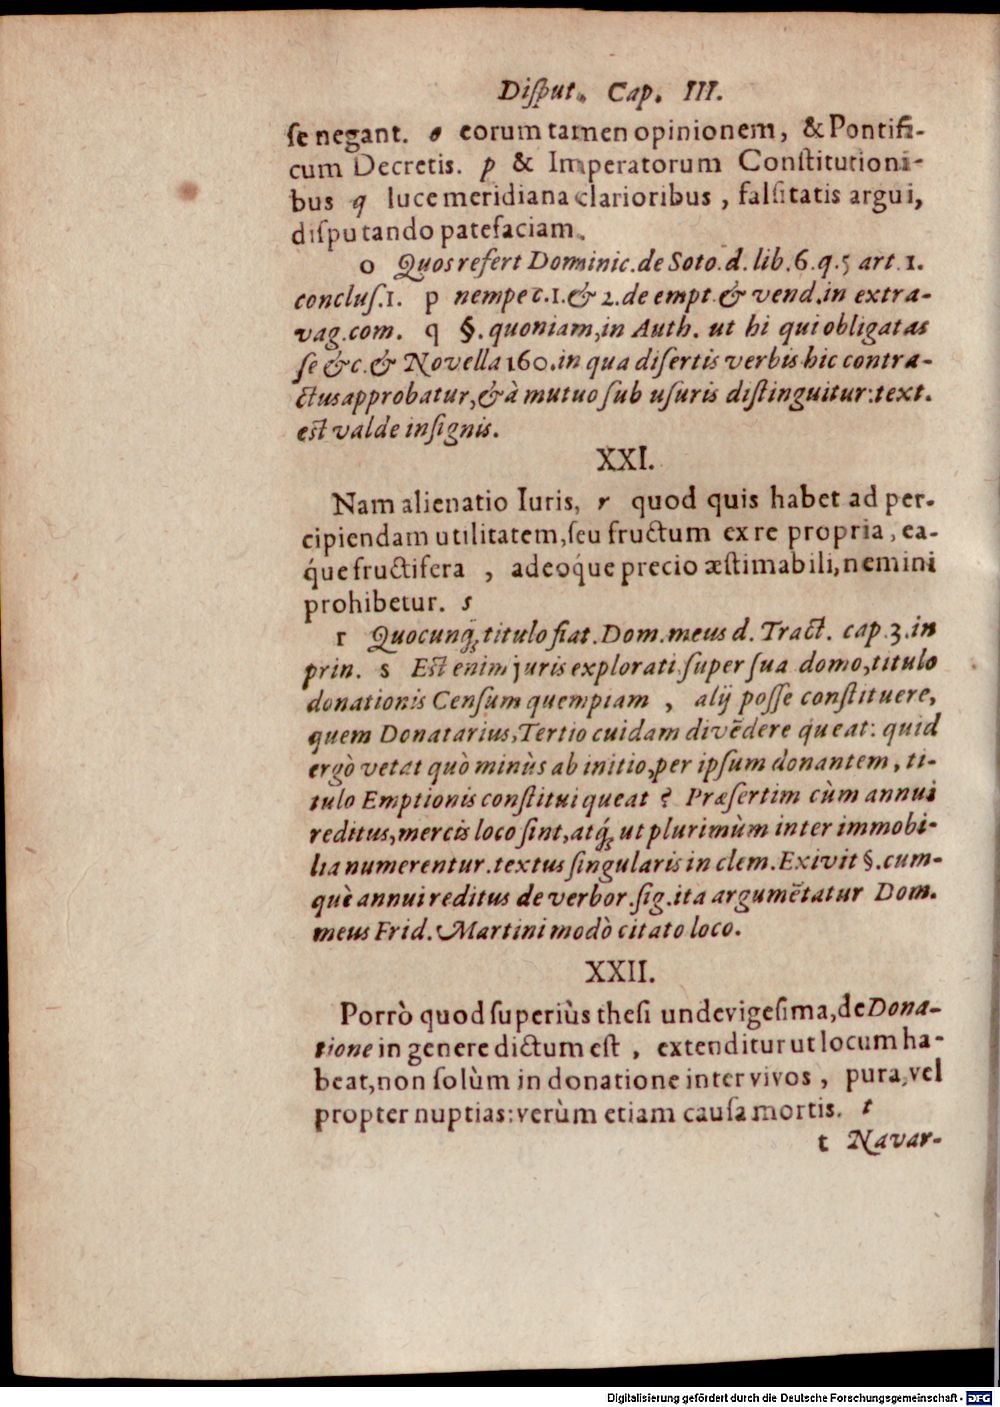 Diſput. Cap. III.
ſe negant. o eorum tamen opinionem, & Pontifi-
cum Decretis. p & Imperatorum Conſtitutioni-
bus q luce meridiana clarioribus, falſitatis argui,
diſputando patefaciam.
o Quos refert Dominic. de Soto. d. lib. 6. q. 5 art. 1.
concluſ. 1. p nempe c. 1. & 2. de empt. & vend. in extra-
vag. com. q §. quoniam, in Auth. ut hi qui obligatas
ſe &c. & Novella 160. in qua diſertis verbis hic contra-
ctus approbatur, & à mutuo ſub uſuris diſtinguitur: text.
eſt valde inſignis.
XXI.
Nam alienatio Iuris, r quod quis habet ad per-
cipiendam utilitatem, ſeu fructum ex re propria, ea-
q́ue fructifera, adeoq́ue precio æſtimabili, nemini
prohibetur. s
r Quocunq́; titulo fiat. Dom. meus d. Tract. cap. 3. in
prin. s Eſt enim juris explorati ſuper ſua domo, titulo
donationis Cenſum quempiam, alij poſſe conſtituere,
quem Donatarius, Tertio cuidam divẽdere queat: quid
ergò vetat quò minùs ab initio, per ipſum donantem, ti-
tulo Emptionis conſtitui queat? Præſertim cùm annui
reditus, mercis loco ſint, atq́; ut plurimùm inter immobi-
lia numerentur. textus ſingularis in clem. Exivit §. cum-
què annui reditus de verbor. ſig. ita argumẽtatur Dom.
meus Frid. Martini modò citato loco.
XXII.
Porrò quod ſuperiùs theſi undevigeſima, de Dona-
tione in genere dictum eſt, extenditur ut locum ha-
beat, non ſolùm in donatione inter vivos, pura, vel
propter nuptias: verùm etiam cauſa mortis. t
t Navar-
Digitalisierung gefördert durch die Deutsche Forschungsgemeinschaft - DFG